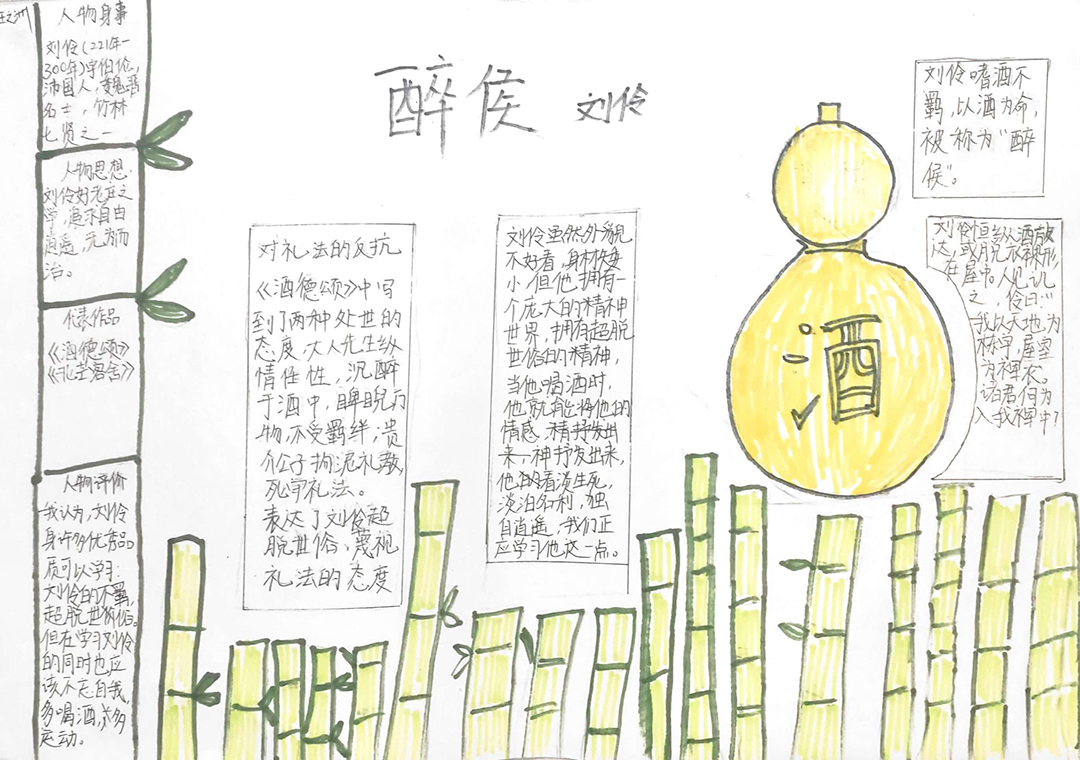 人物身事
刘伶(221年—
300年)字伯伦,
沛国人,魏晋
名士,竹林
七贤之一
人物思想
刘伶好老庄之
学,追求自由
逍遥,无为而
治。
代表作品
《酒德颂》
《北芒客舍》
人物评价
我认为,刘伶
身许多优秀品
质可以学习:
刘伶的不羁,
超脱世俗。
但在学习刘伶
的同时也应
该不忘自我,
多喝酒,多
运动。
醉侯 刘伶
对礼法的反抗
《酒德颂》中写
到了两种处世的
态度,大人先生纵
情任性,沉醉
于酒中,睥睨万
物,不受羁绊;贵
介公子拘泥礼教,
死守礼法。
表达了刘伶超
脱世俗、蔑视
礼法的态度
刘伶虽然外貌
不好看,身材矮
小,但他拥有一
个庞大的精神
世界,拥有超脱
世俗的精神,
当他喝酒时,
他就能将他的
情感,精抒发出
来,神抒发出来,
他的看淡生死,
淡泊名利,独
自逍遥,我们正
应学习他这一点。
酒
刘伶嗜酒不
羁,以酒为命,
被称为“醉
侯”。
刘伶恒纵酒放
达,或脱衣裸形,
在屋中。人见讥
之,伶曰:“
我以天地为
栋宇,屋室
为裈衣。
诸君何为
入我裈中?